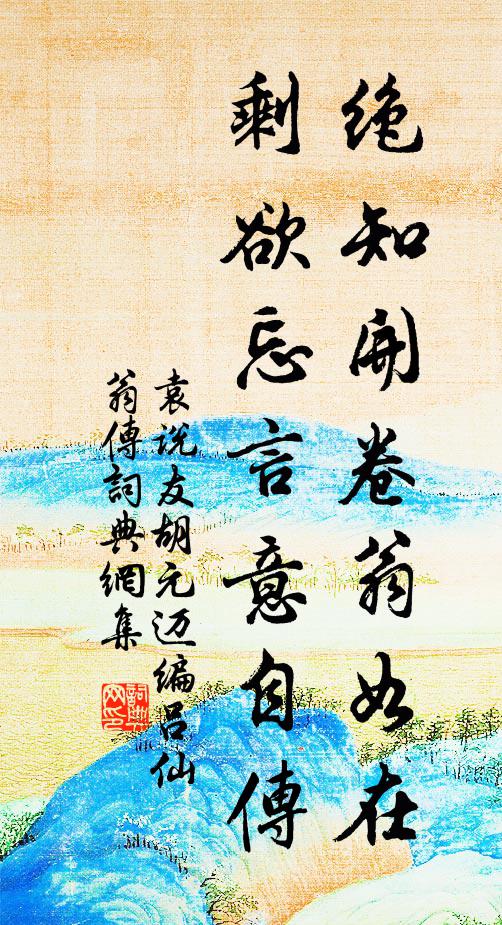 绝知开卷翁如在
剩欲忘言意自傳
袁说友胡元迈编吕仙
翁傳词典網集